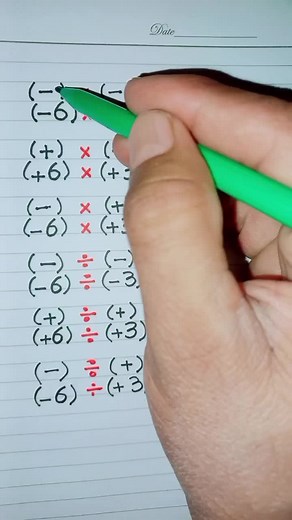 Date
(-) (-
(-6) ×
(+) × (
(+6) × (+3
(-) × (+
(-6) × (+
(-) ÷ (-)
(-6) ÷ (-3
(+) ÷ (+)
(+6) ÷ (+3)
(-) ÷ (+)
(-6) ÷ (+3